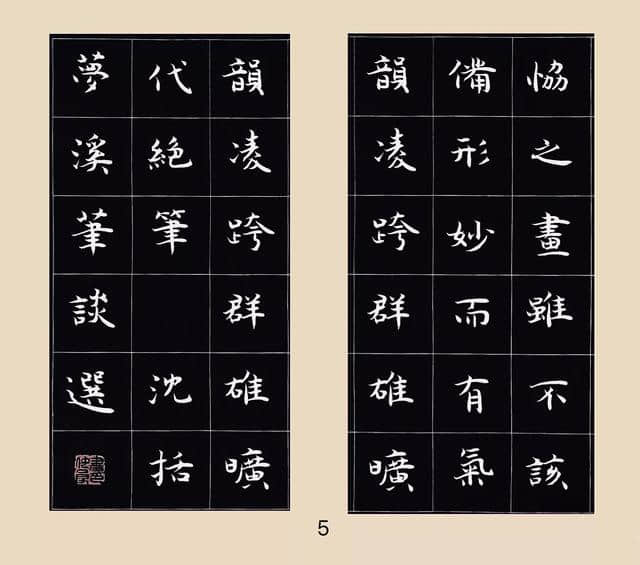 恊之畫雖不該
備形妙而有氣
韻凌跨群雄曠
韻凌跨群雄曠
代絕筆 沈括
夢溪筆談選
5